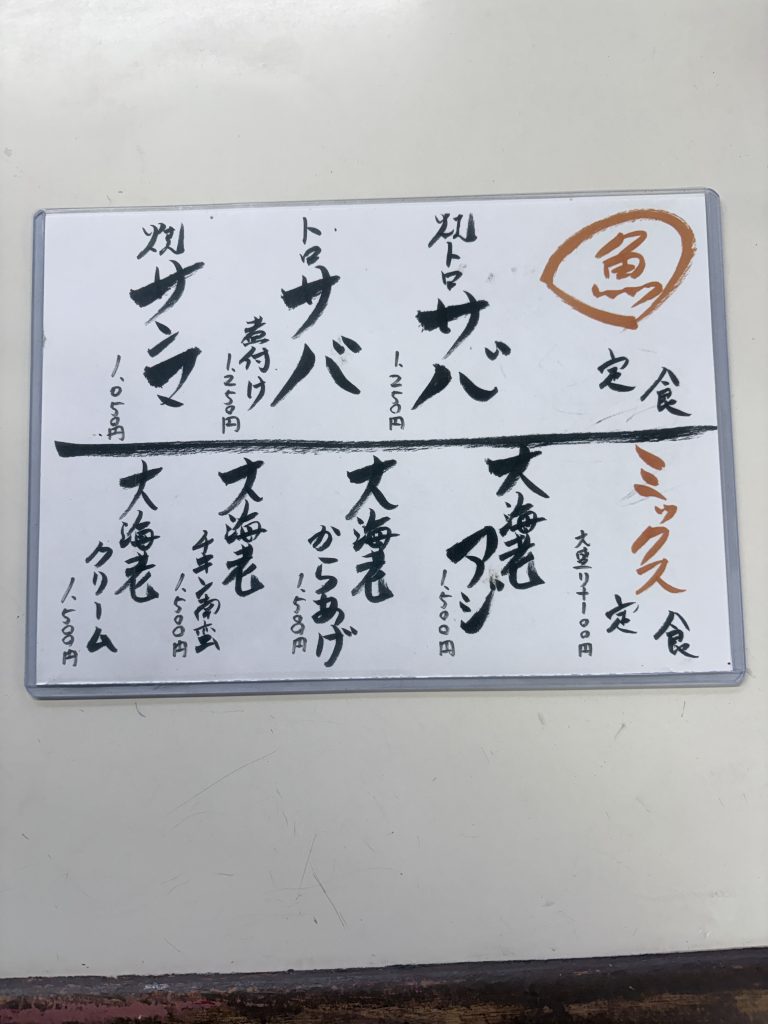 魚
定食
焼トロサバ
1,250円
トロサバ
煮付け
1,250円
焼サンマ
1,050円
ミックス
定食
大盛り+100円
大海老
アジ
1,500円
大海老
からあげ
1,500円
大海老
チキン南蛮
1,500円
大海老
クリーム
1,500円